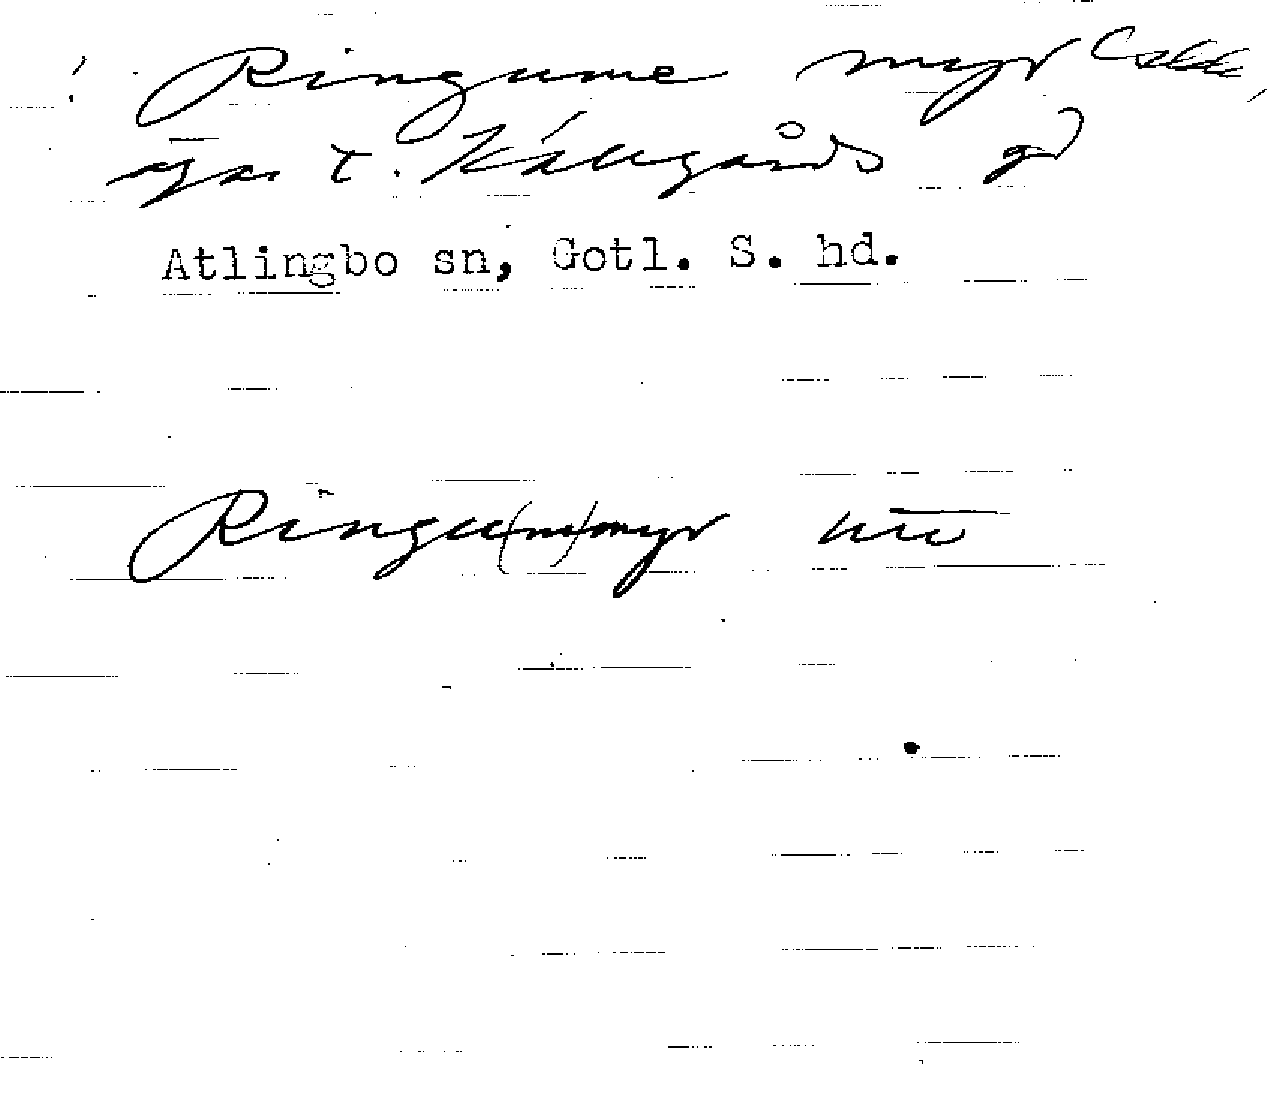 ! Ringume myr
t. Källgårds gd
Atlingbo sn, Gotl. S. hd.
Ringu(m)myr